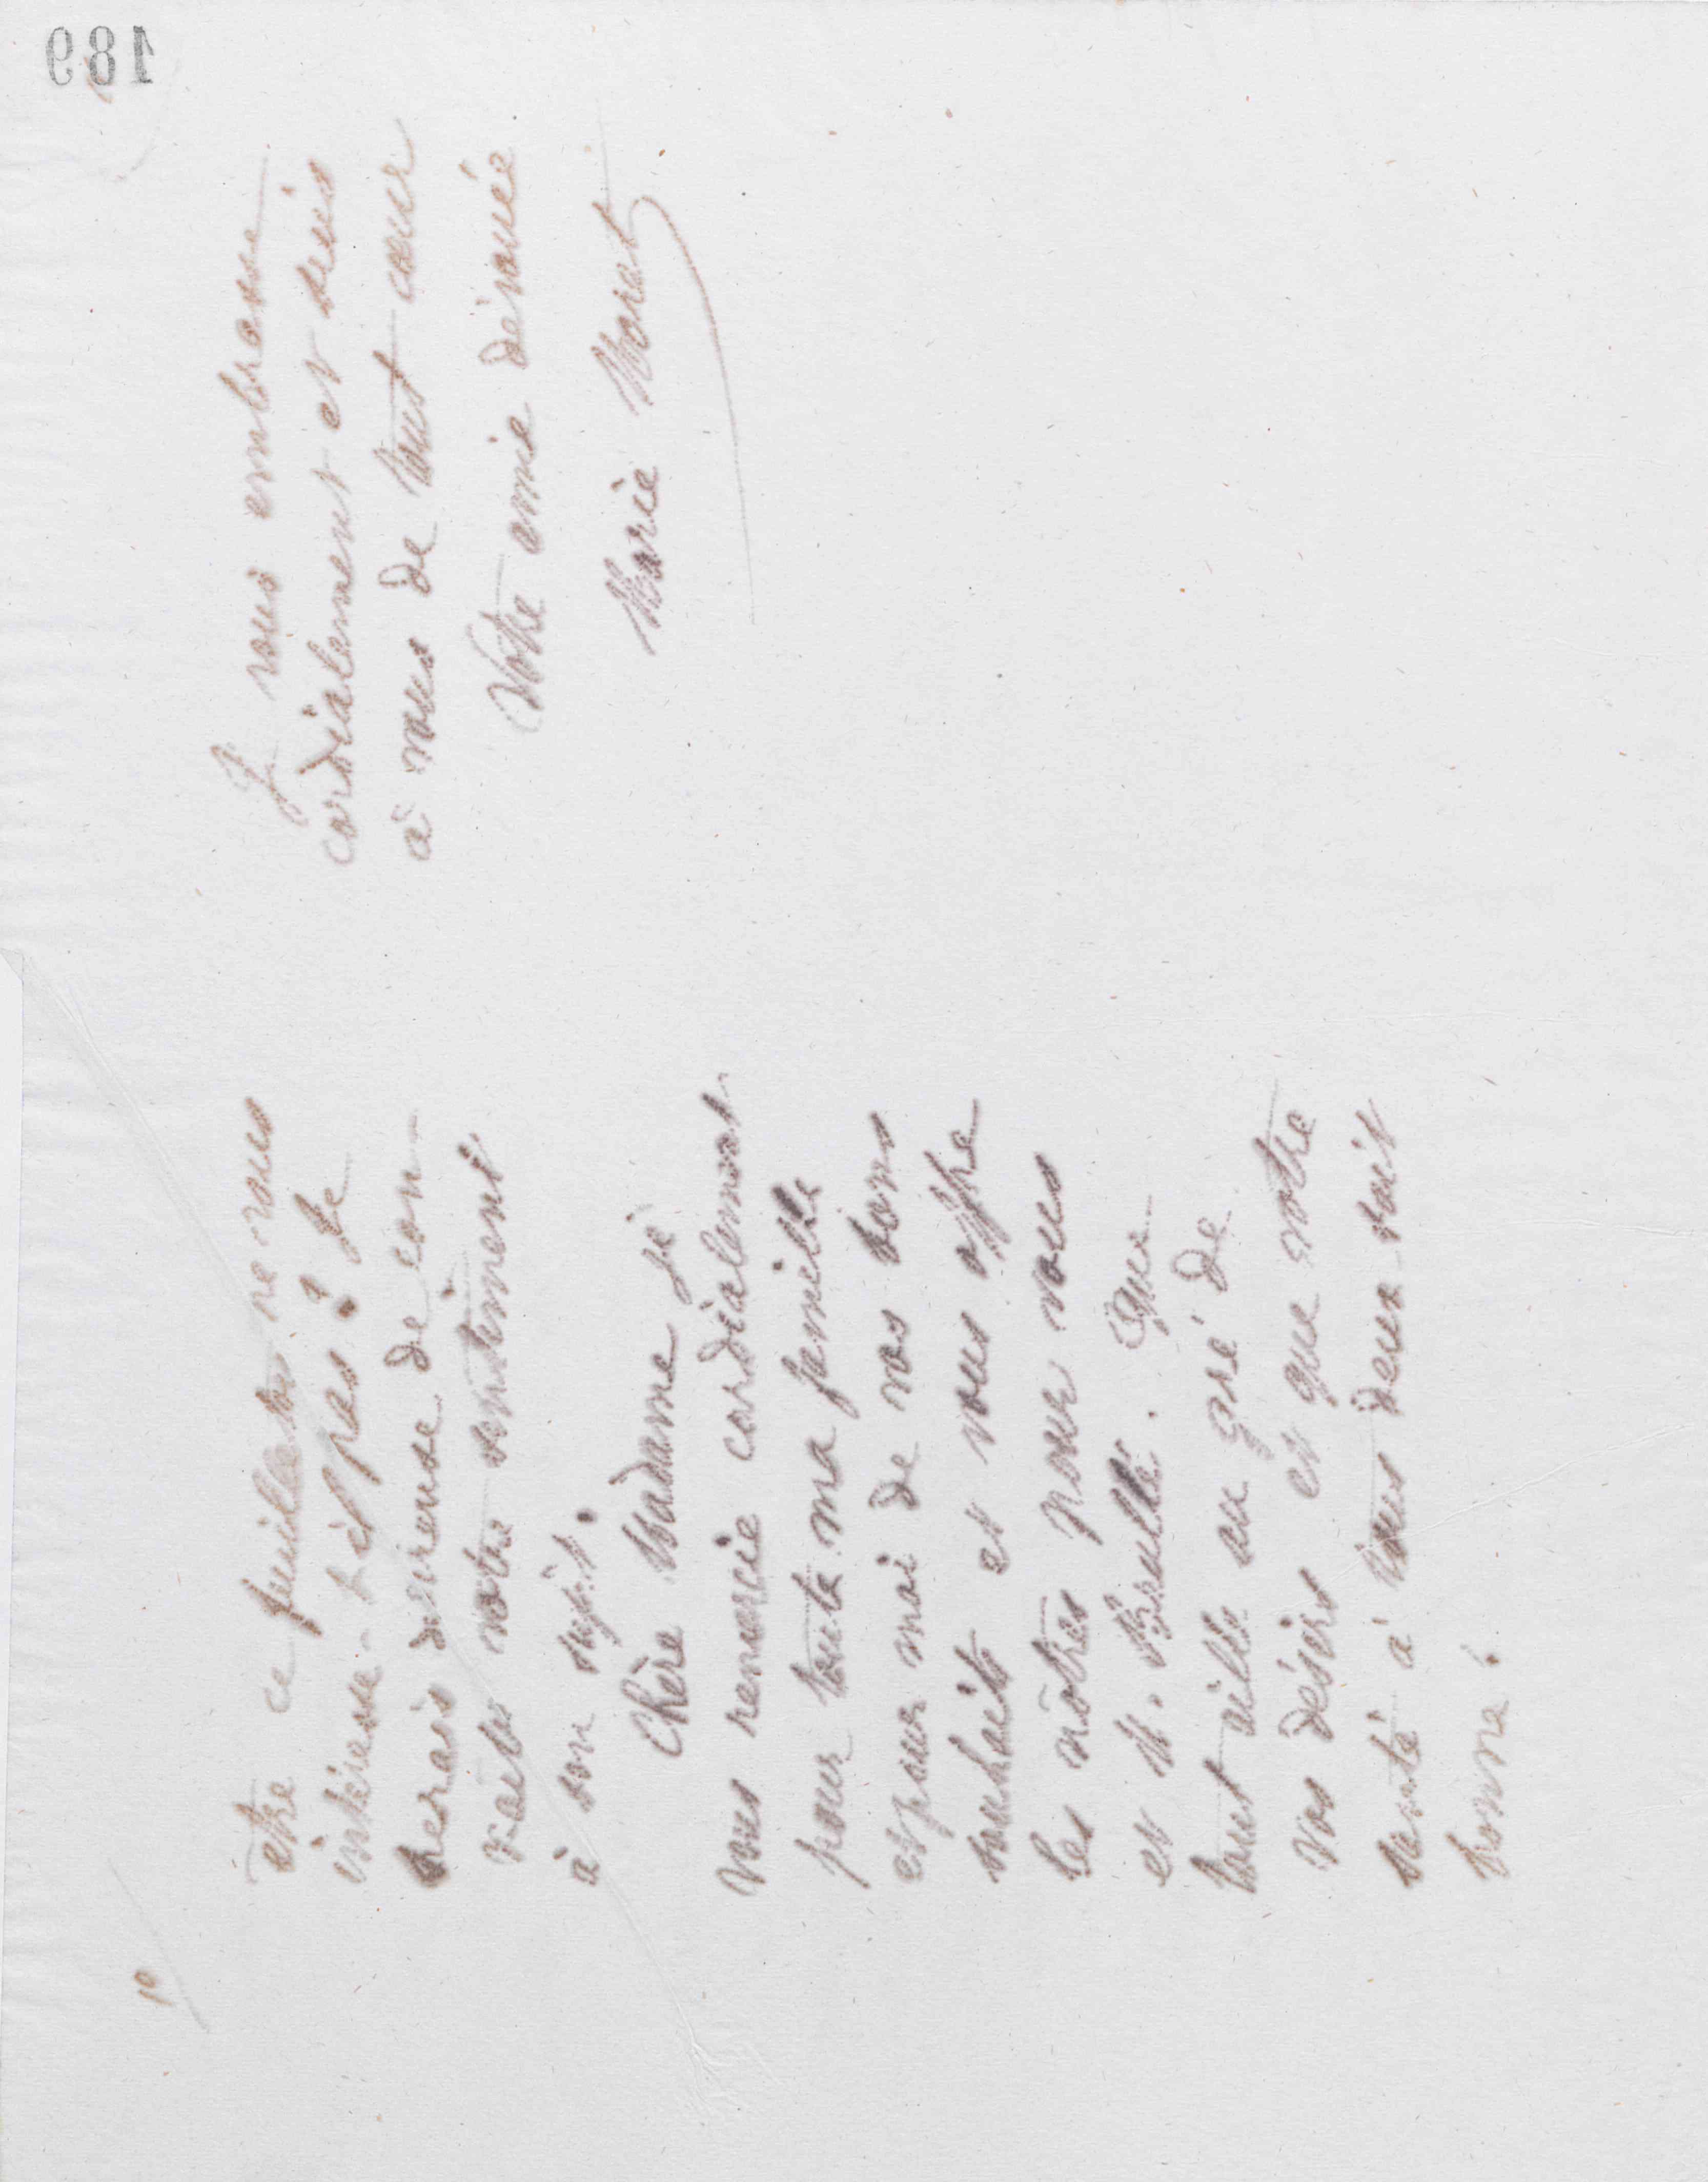 189
10
être ce feuilleton ne vous
intéresse-t-il pas ? Je
serais désireuse de con-
naître votre sentiment
à son sujet.
Chère Madame je
vous remercie cordialement
pour toute ma famille
et pour moi de vos bons
souhaits et vous offre
les nôtres pour vous
et M. . Que
tout aille au gré de
vos désirs et que votre
santé à tous deux soit
bonne !
Je vous embrasse
cordialement et suis
à vous de tout cœur
Votre amie dévouée
Marie Moret